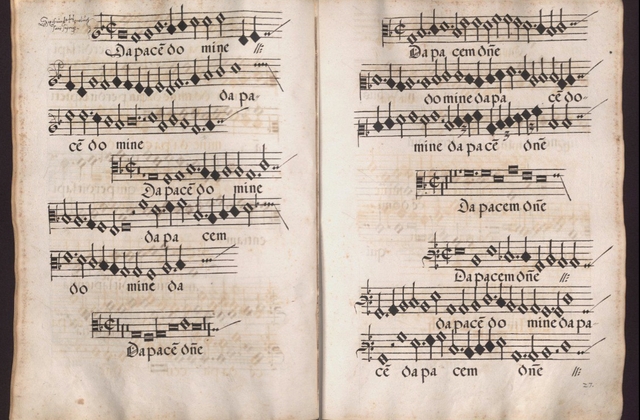 Da pacē do mine
da pa
cē do mine
Da pacē do mine
da pa cem
do mine da
Da pacē dn̄e
Da pa cem dn̄e
do mine da pa cē do
mine da pa cē dn̄e
Da pacem dn̄e
Da pacem dn̄e
da pacē do mine da pa
cē da pa cem dn̄e
27.